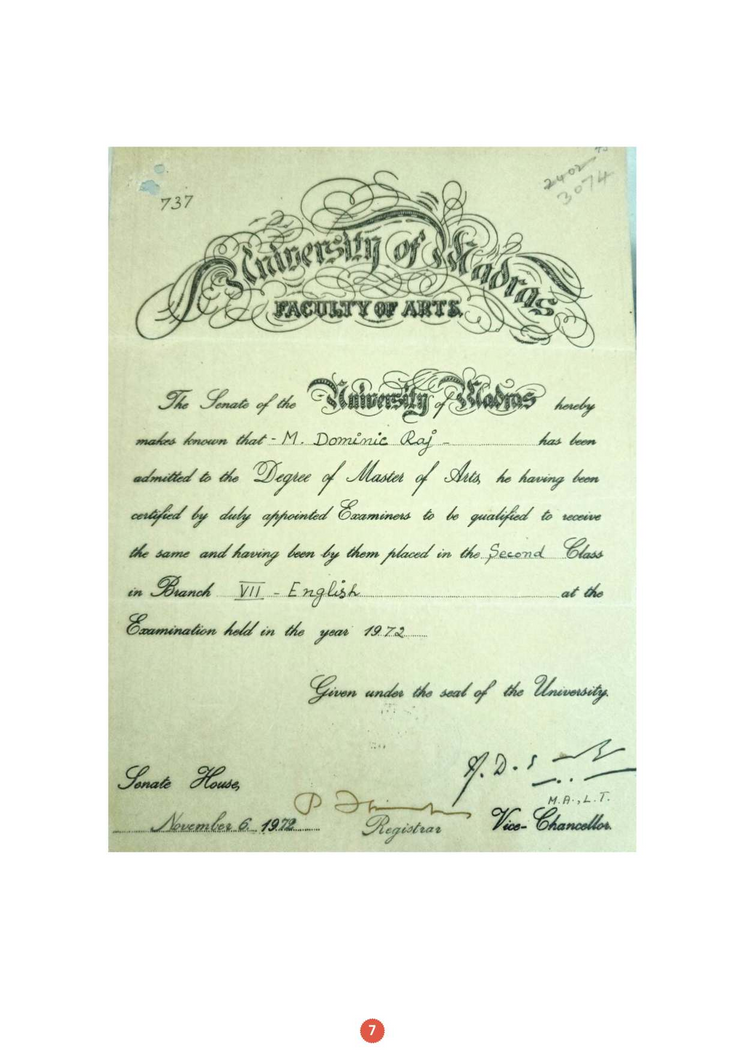 737
2402
3074
University of Madras
FACULTY OF ARTS.
The Senate of the University of Madras hereby
makes known that - M. Dominic Raj - has been
admitted to the Degree of Master of Arts, he having been
certified by duly appointed Examiners to be qualified to receive
the same and having been by them placed in the Second Class
in Branch VII - English at the
Examination held in the year 1972
Given under the seal of the University.
Senate House,
M.A., L.T.
November 6, 1972 Registrar Vice-Chancellor.
7